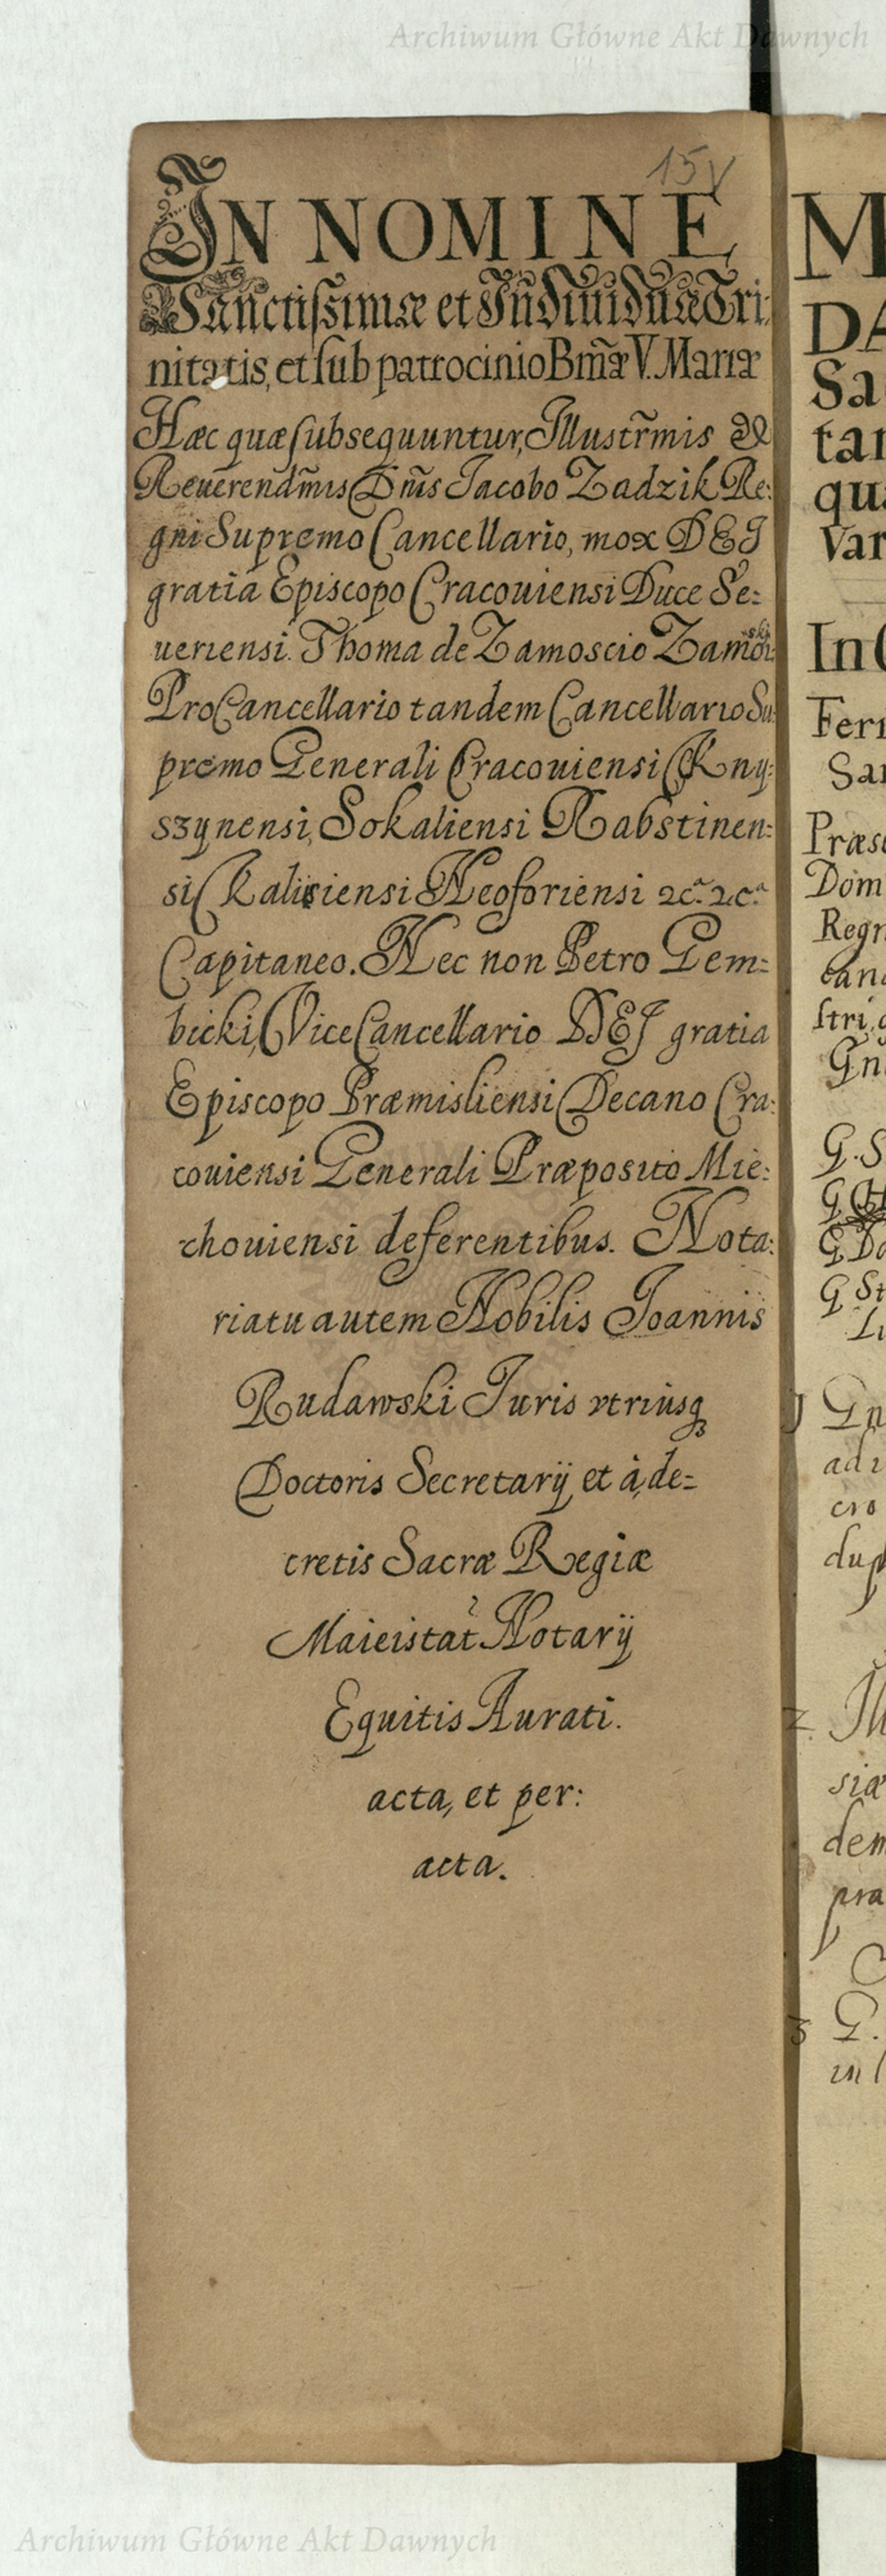 Archiwum Główne Akt Dawnych
15v
IN NOMINE
Sanctissimæ et Indiuiduæ Tri:
nitatis, et sub patrocinio Bm̃æ V. Mariæ
Hæc quæ subsequuntur, Illustr̃mis &
Reuerendm̃is Dn̄is Jacobo Zadzik Re:
gni Supremo Cancellario, mox DEI
gratia Episcopo Cracouiensi Duce Se:
ueriensi. Thoma de Zamoscio Zamoiski
ProCancellario tandem Cancellario Su
premo Generali Cracouiensi Kny:
szynensi, Sokaliensi Rabstinen:
si Kalisiensi Neoforiensi 2c.ᵃ 2c.ᵃ
Capitaneo. Nec non Petro Gem:
bicki, ViceCancellario DEI gratia
Episcopo Præmisliensi Decano Cra:
couiensi Generali Præposito Mie:
chouiensi deferentibus. Nota:
riatu autem Nobilis Joannis
Rudawski Juris vtriusq3
Doctoris Secretarÿ et à, de=
cretis Sacræ Regiæ
Maieistat Notarÿ
Equitis Aurati.
acta, et per:
acta.
M
DA
Sa
tar
qua
Var
In
Ferr
Sar
Præs
Dom
Regn
cand
stri
Gn
G. S
G
G Do
G St
Li
1 Gn
ad i
cro
dup
2. Ill
siæ
dem
pra
3 G.
in l
Archiwum Główne Akt Dawnych